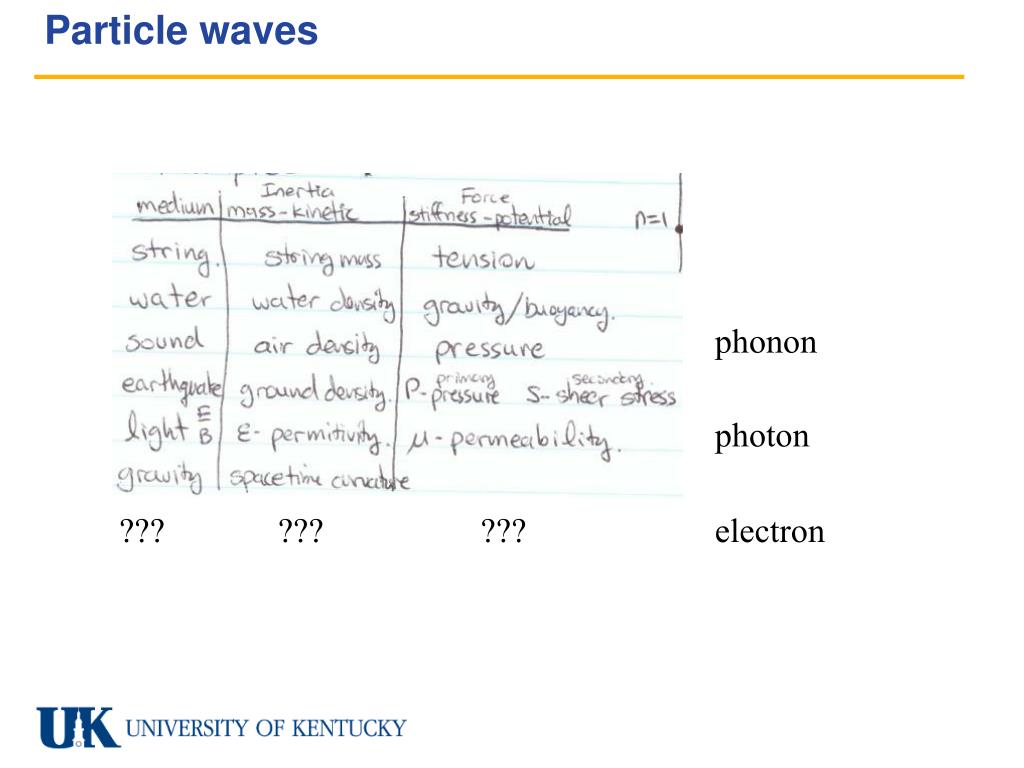 Particle waves
Inertia Force
medium mass-kinetic stiffness-potential n=1
string string mass tension
water water density gravity/buoyancy.
sound air density pressure phonon
primary secondary
earthquake ground density. P-pressure S-shear stress
E
light B ε- permitivity. μ-permeability. photon
gravity spacetime curvature
??? ??? ??? electron
UK UNIVERSITY OF KENTUCKY